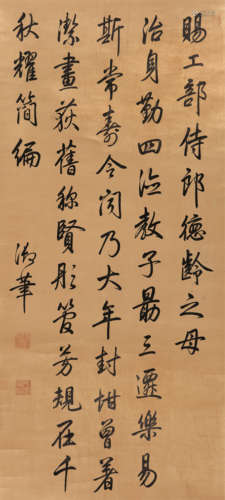 賜工部侍郎德齡之母
治身勤四德教子勗三遷樂易
斯常壽令聞乃大年封坩曾著
潔畫荻舊稱賢彤管芳規在千
秋耀簡編
御筆